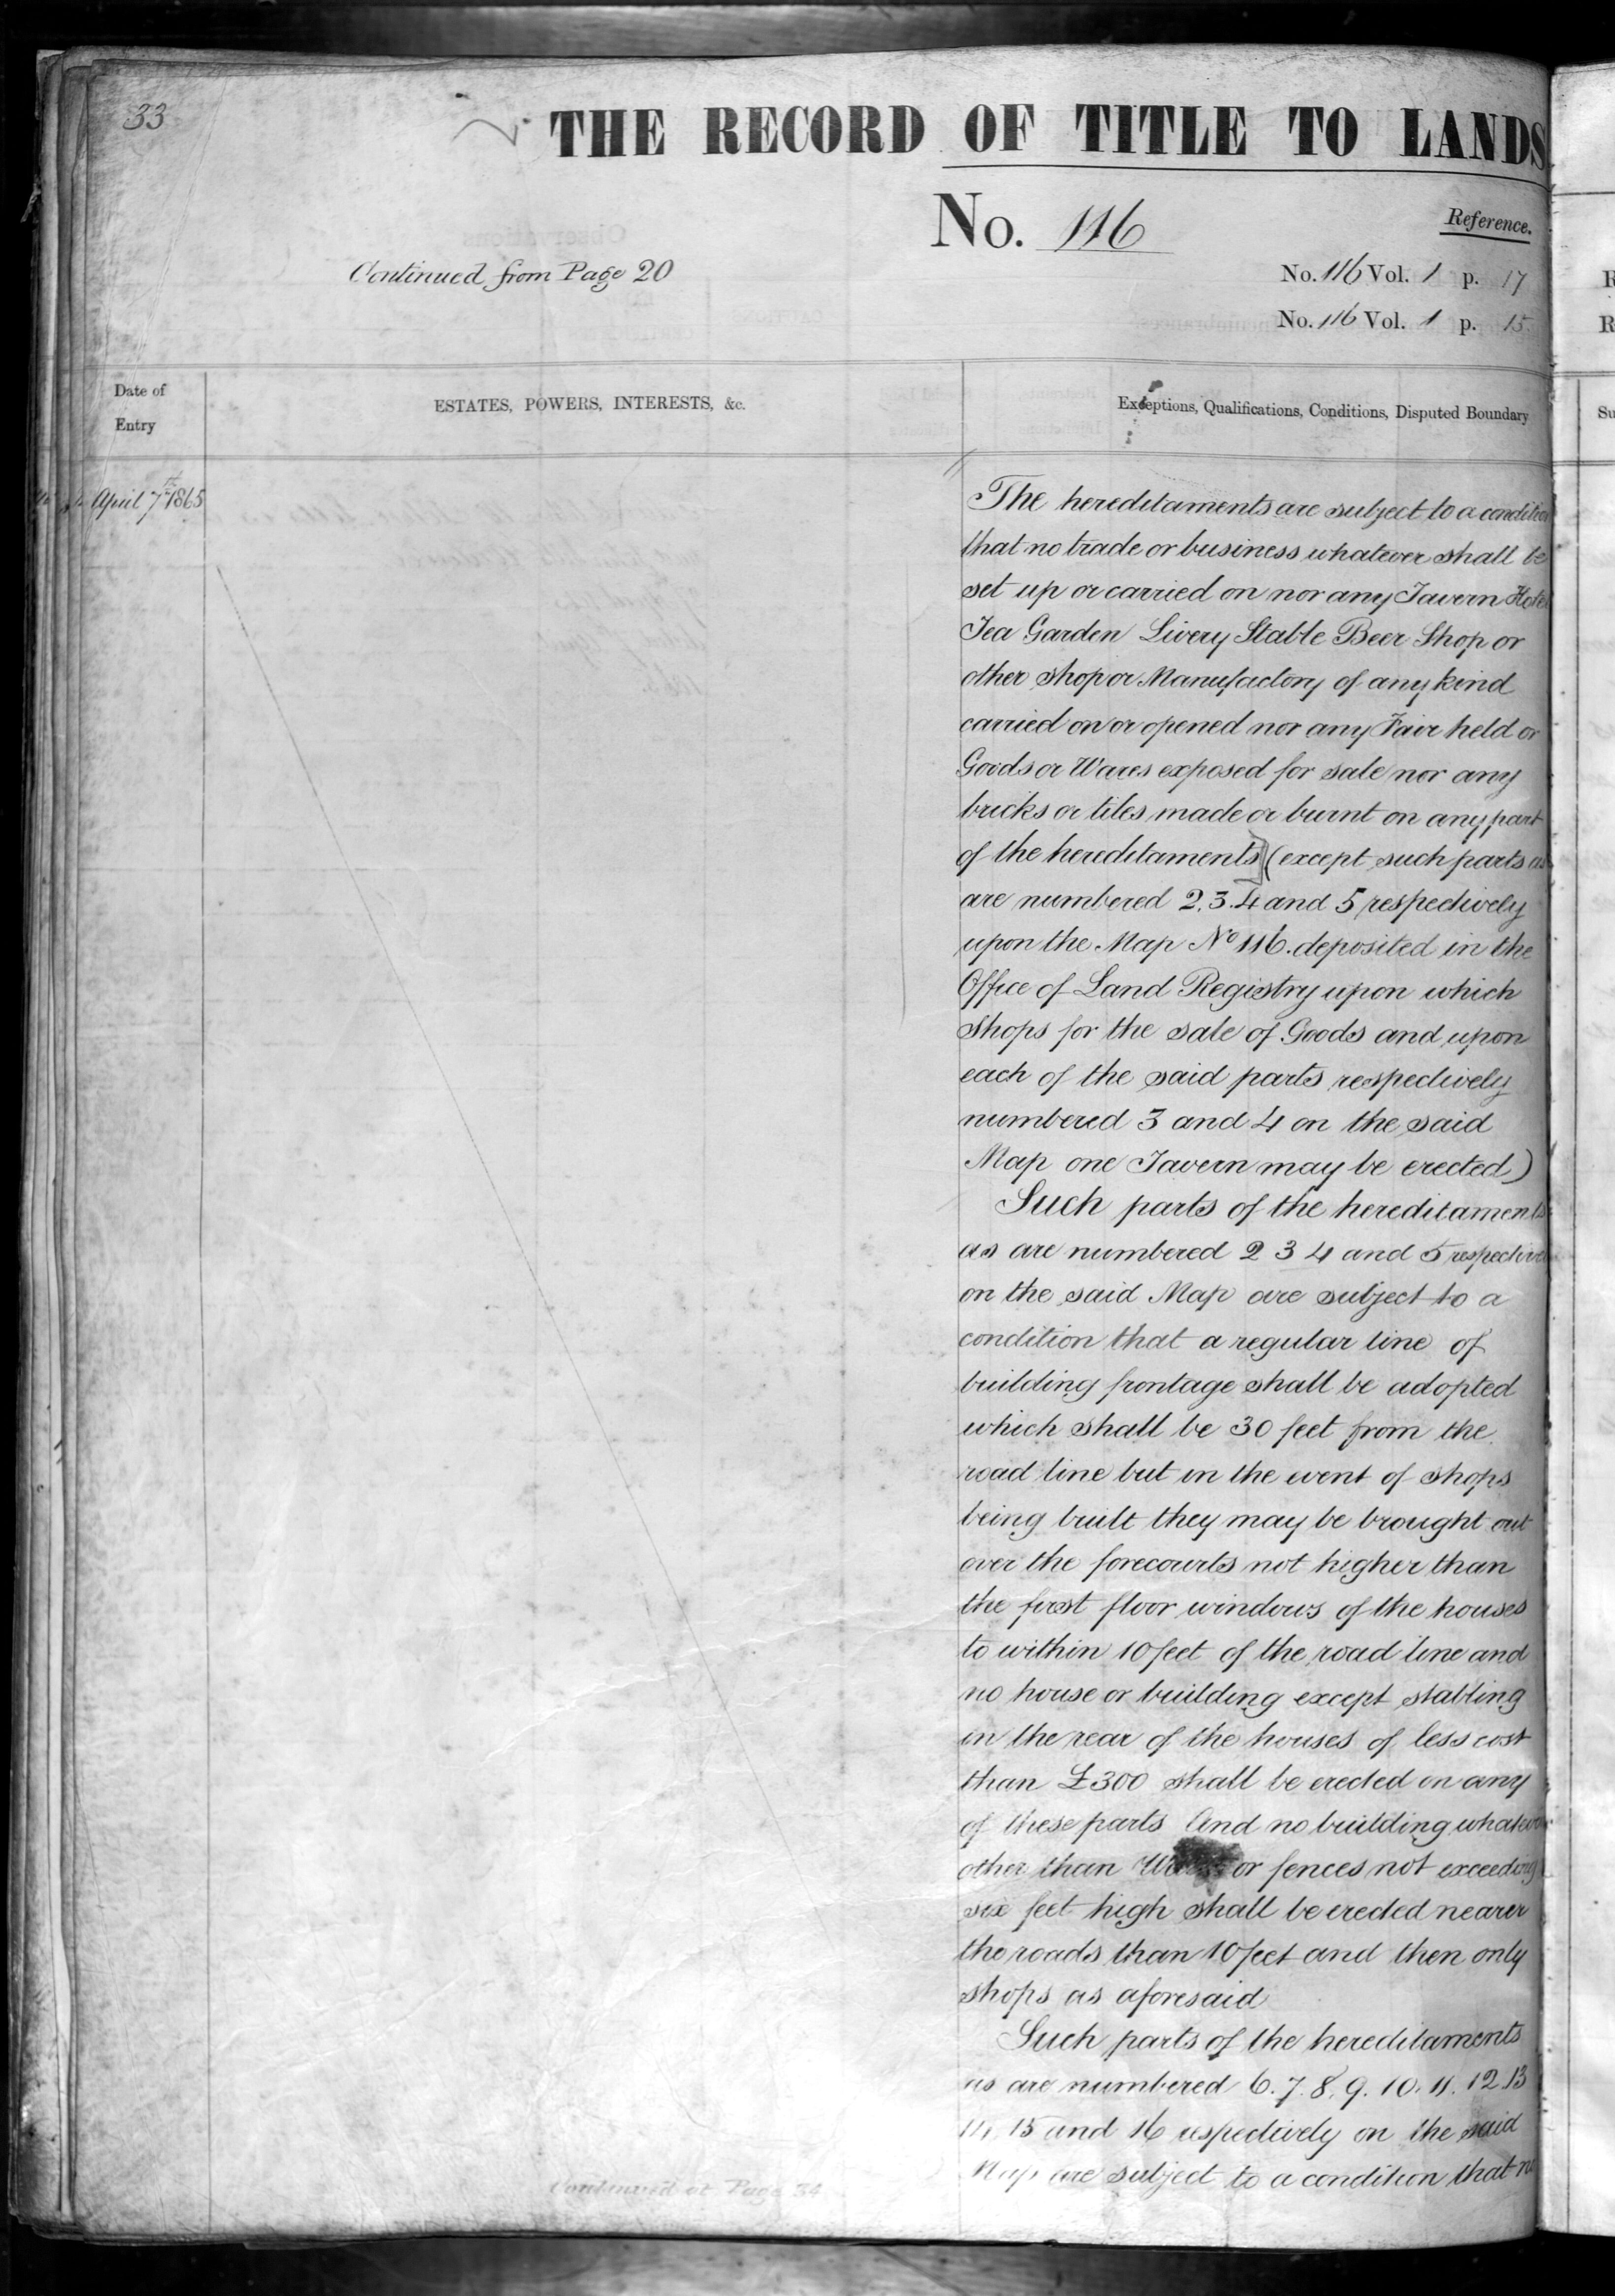 33
THE RECORD OF TITLE TO LANDS
No. 116
Reference.
Continued from Page 20
No. 116 Vol. 1 p. 17
No. 116 Vol. 1 p. 15
Date of
Entry
ESTATES, POWERS, INTERESTS, &c.
Exceptions, Qualifications, Conditions, Disputed Boundary
April 7th 1865
The hereditaments are subject to a condition
that no trade or business whatever shall be
set up or carried on nor any Tavern Hotel
Tea Garden Livery Stable Beer Shop or
other shop or Manufactory of any kind
carried on or opened nor any Fair held or
Goods or Wares exposed for sale nor any
bricks or tiles made or burnt on any part
of the hereditaments (except such parts as
are numbered 2. 3. 4 and 5 respectively
upon the Map No 116. deposited in the
Office of Land Registry upon which
Shops for the sale of Goods and upon
each of the said parts respectively
numbered 3 and 4 on the said
Map one Tavern may be erected)
Such parts of the hereditaments
as are numbered 2 3 4 and 5
on the said Map are subject to a
condition that a regular line of
building frontage shall be adopted
which shall be 30 feet from the
road line but in the event of shops
being built they may be brought out
over the forecourts not higher than
the first floor windows of the houses
to within 10 feet of the road line and
no house or building except stabling
in the rear of the houses of less cost
than £300 shall be erected on any
of these parts And no building whatever
other than or fences not exceeding
six feet high shall be erected nearer
the roads than 10 feet and then only
shops as aforesaid
Such parts of the hereditaments
as are numbered 6. 7. 8. 9. 10. 11. 12 13
14. 15 and 16 respectively on the said
Map are subject to a condition that no
Continued at Page 34